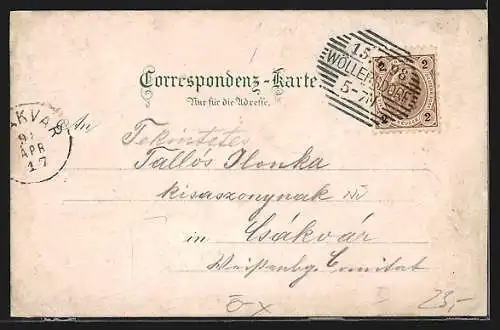 Correspondenz-Karte.
Nur für die Adresse.
15/4 98
WÖLLERSDORF
5-7N
2 2
2 2
AKVÁR
98
APR
17
An
Tekintetes
Tallós Ilonka
kisaszonynak
in Csákvár
Weißenbg. Comitat
23,-